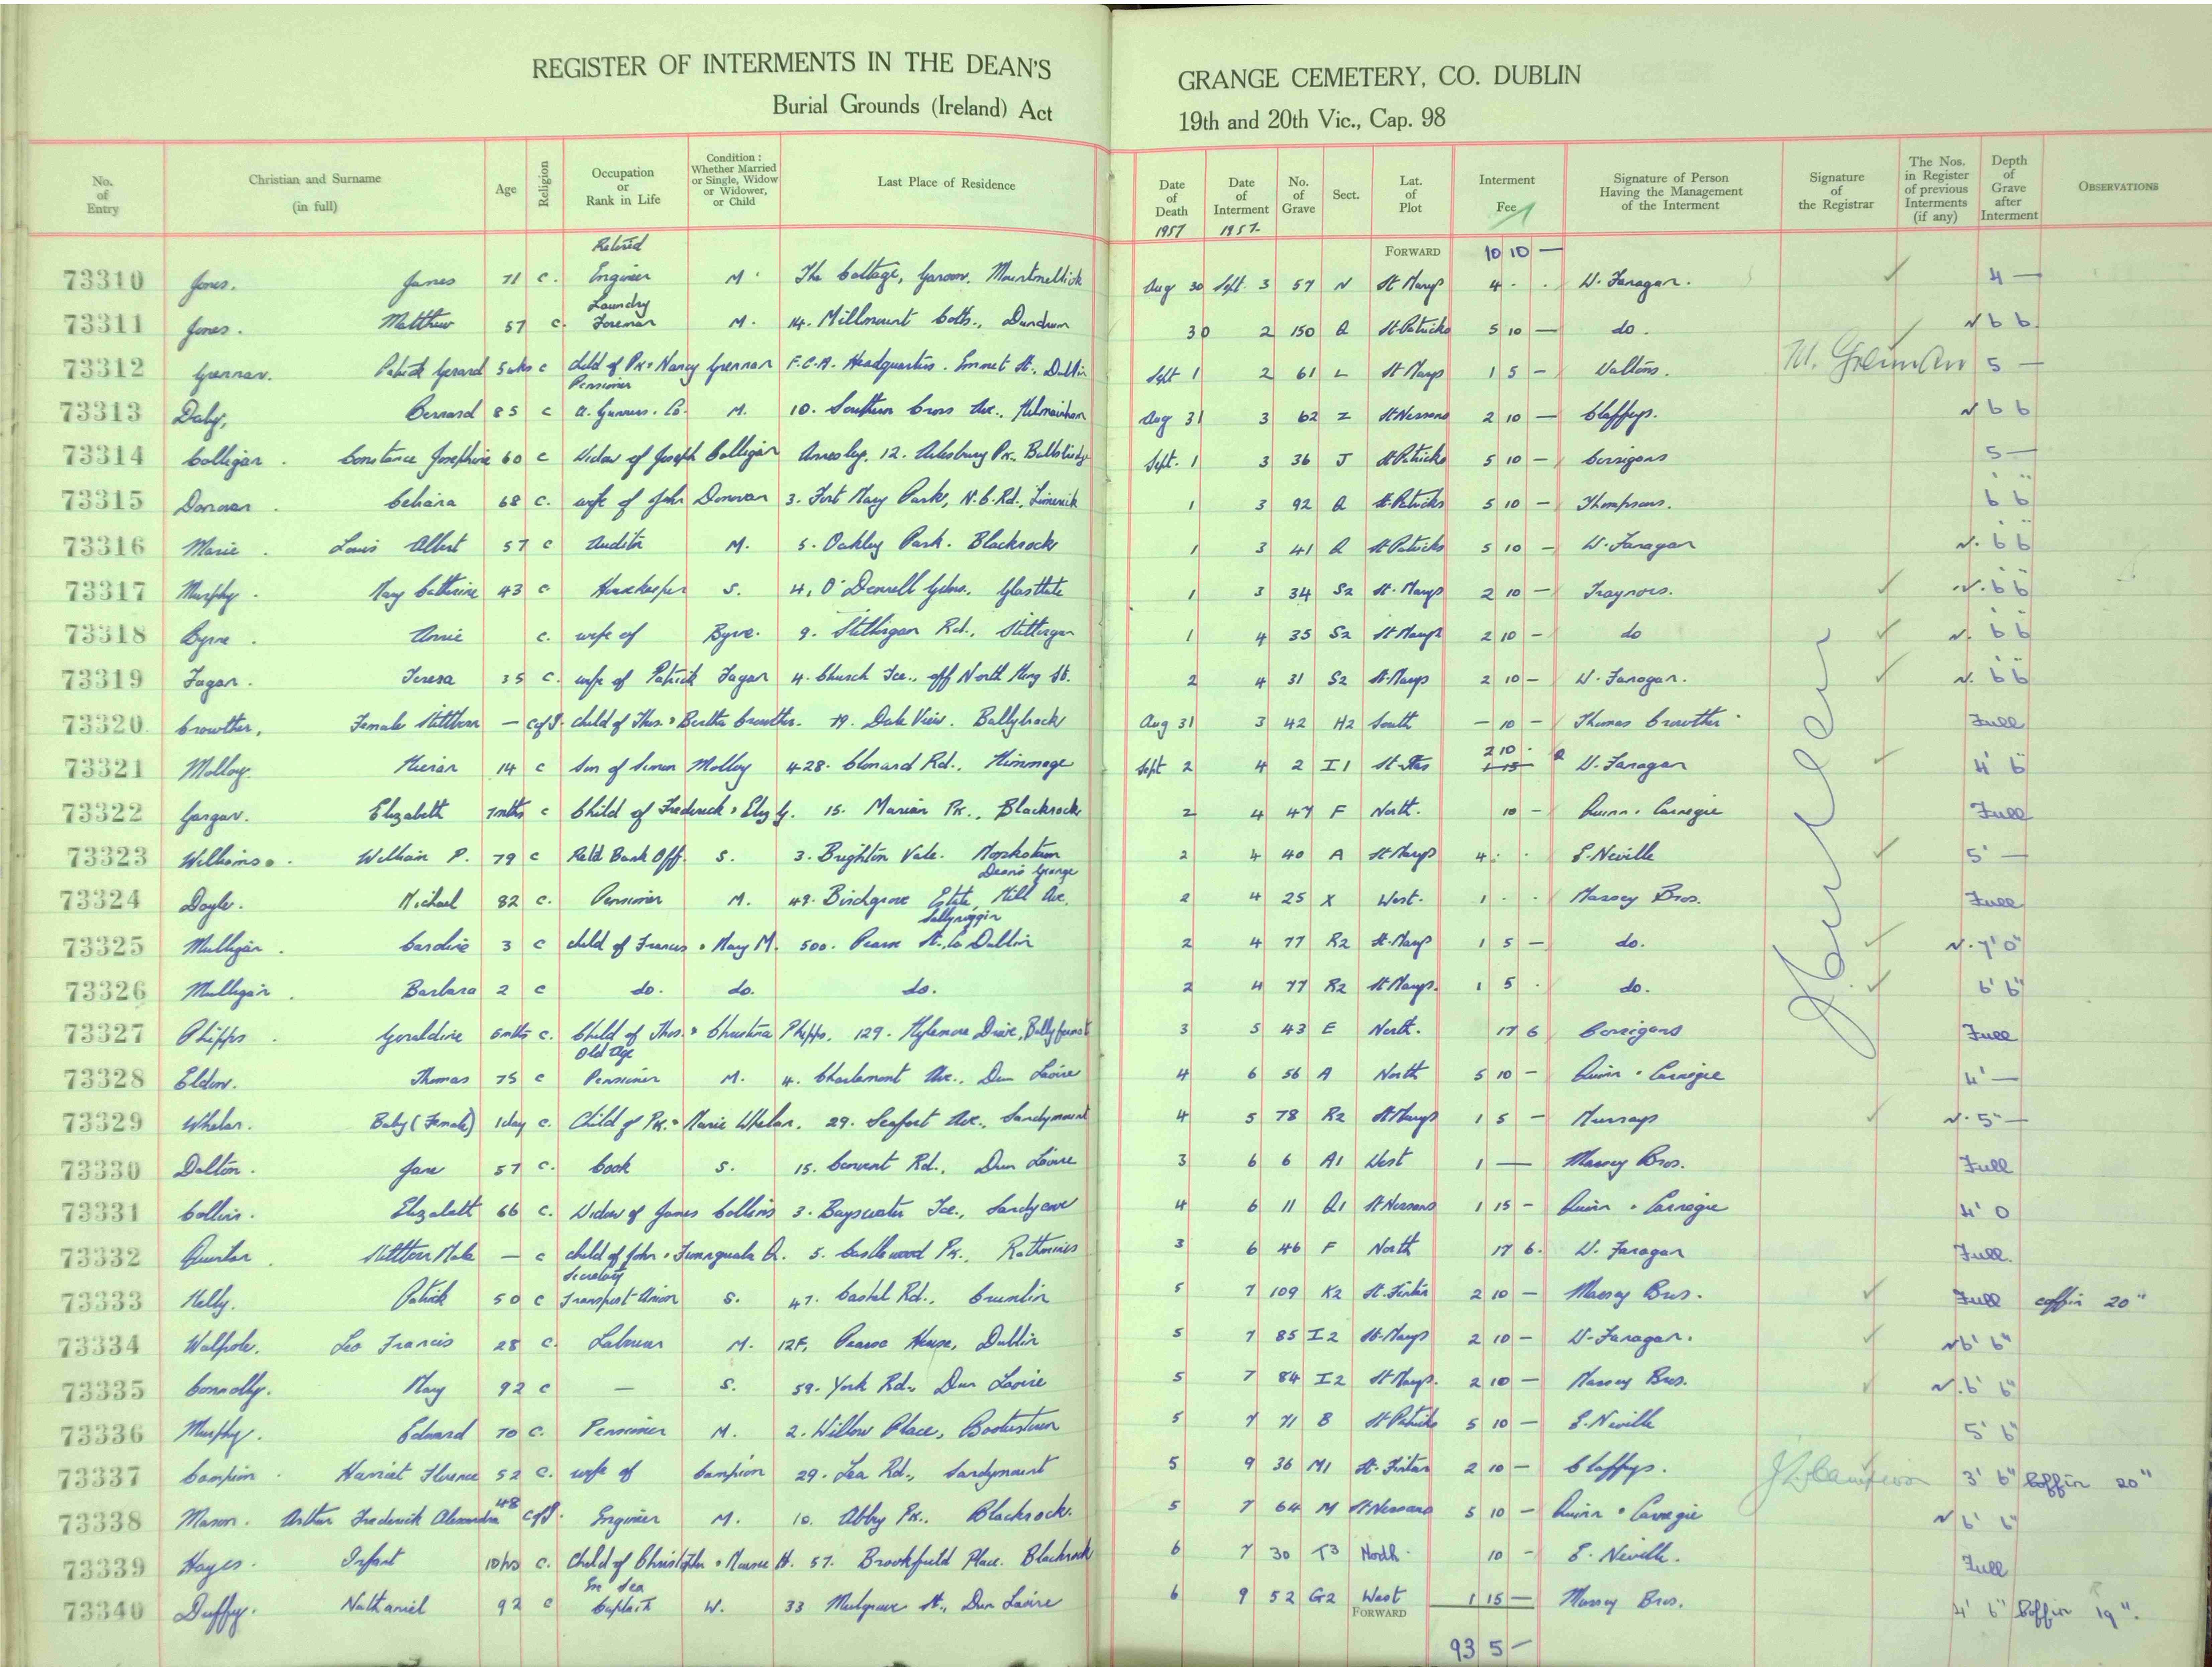 REGISTER OF INTERMENTS IN THE DEAN'S GRANGE CEMETERY, CO. DUBLIN
Burial Grounds (Ireland) Act 19th and 20th Vic., Cap. 98
No. of Entry Christian and Surname (in full) Age Religion Occupation or Rank in Life Condition: Whether Married or Single, Widow or Widower, or Child Last Place of Residence Date of Death 1957 Date of Interment 1957 No. of Grave Sect. Lat. of Plot Interment Fee Signature of Person Having the Management of the Interment Signature of the Registrar The Nos. in Register of previous Interments (if any) Depth of Grave after Interment OBSERVATIONS
FORWARD 10 10 —
73310 Jones. James 71 C. Retired Engineer M. The Cottage, Garoon, Mountmellick Aug 30 Sept. 3 57 N St Marys 4 . . W. Fanagan. 4 —
73311 Jones. Matthew 57 C. Laundry Foreman M. 14. Millmount Cotts., Dundrum 30 2 150 Q St. Patricks 5 10 — do. N 6 6
73312 Grennan. Patrick Gerard 5 wks C Child of Pk. & Nancy Grennan F.C.A. Headquarters. Emmet St., Dublin Sept 1 2 61 L St Marys 1 5 — Waltons. 5 —
73313 Daly, Bernard 85 C Pensioner A. Guinness. Co. M. 10. Southern Cross Ave., Kilmainham Aug 31 3 62 Z St Nessans 2 10 — Claffeys. N 6 6
73314 Colligan. Constance Josephine 60 C Widow of Joseph Colligan Annesley, 12. Ailesbury Pk., Ballsbridge Sept. 1 3 36 J St Patricks 5 10 — Corrigans 5 —
73315 Donovan. 68 C. wife of John Donovan 3. Fort Mary Park, N.C. Rd., Limerick 1 3 92 Q St. Patricks 5 10 — Thompsons. 6 6
73316 Marie. Louis Albert 57 C Auditor M. 5. Oakley Park. Blackrock 1 3 41 Q St Patricks 5 10 — W. Fanagan N. 6 6
73317 Murphy. Mary Catherine 43 C Housekeeper S. 4, O'Donnell Gdns., Glasthule 1 3 34 S2 St. Marys 2 10 — Traynors. N. 6 6
73318 Byrne. Annie C. wife of Byrne. 9. Stillorgan Rd., Stillorgan 1 4 35 S2 St Marys 2 10 — do N. 6 6
73319 Fagan. Teresa 35 C. wife of Patrick Fagan 4. Church Tce., off North King St. 2 4 31 S2 St. Marys 2 10 — W. Fanagan. N. 6 6
73320 Crowther, Female Stillborn — C of I. child of Thos. & Bertha Crowther. 19. Dale View. Ballybrack Aug 31 3 42 H2 South — 10 — Thomas Crowther Full
73321 Molloy. Kieran 14 C Son of Simon Molloy 428. Clonard Rd., Kimmage Sept 2 4 2 I1 2 10 . W. Fanagan 4' 6
73322 Gargan. Elizabeth 7mths C Child of Frederick & Eliz G. 15. Marian Pk., Blackrock 2 4 47 F North. 10 — Quinn & Carnegie Full
73323 Williams. William P. 79 C Retd Bank Off. S. 3. Brighton Vale. Monkstown 2 4 40 A St Marys 4 . . E. Neville 5' —
73324 Doyle. Michael 82 C. Pensioner M. 49. Birchgrove Estate, Kill Ave. Deans Grange 2 4 25 X West. 1 . . Massey Bros. Full
73325 Mulligan. Caroline 3 C child of Francis & Mary M. 500. Pearse St. Sallynoggin Co Dublin 2 4 77 R2 St. Marys 1 5 — do. N. 7' 0"
73326 Mulligan. Barbara 2 C do. do. do. 2 4 77 R2 St Marys. 1 5 . do. 6' 6"
73327 Phipps. Geraldine 6mths C. Child of Thos. & Christina Phipps. 129. Kylemore Drive, Ballyfermot 3 5 43 E North. 17 6 Corrigans Full
73328 Eldon. Thomas 75 C Old Age Pensioner M. 4. Charlemont Ave., Dun Laoire 4 6 56 A North 5 10 — Quinn & Carnegie 4' —
73329 Whelan. Baby (Female) 1day C. Child of Pk. & Marie Whelan. 29. Seafort Ave., Sandymount 4 5 78 R2 St Marys 1 5 — Murrays N. 5" —
73330 Dalton. Jane 57 C. Cook S. 15. Convent Rd., Dun Laoire 3 6 6 A1 West 1 — Massey Bros. Full
73331 Collins. Elizabeth 66 C. Widow of James Collins 3. Bayswater Tce., Sandycove 4 6 11 Q1 St Nessans 1 15 — Quinn & Carnegie 4' 0
73332 Quinlan. Stillborn Male — C child of John & Finnguala Q. 5. Castlewood Pk., Rathmines 3 6 46 F North 17 6. W. Fanagan Full.
73333 Kelly. Patrick 50 C Secretary Transport Union S. 47. Cashel Rd., Crumlin 5 7 109 K2 St. Fintan 2 10 — Massey Bros. Full coffin 20"
73334 Walpole. Leo Francis 28 C. Labourer M. 12F, Pearse House, Dublin 5 7 85 I2 St. Marys 2 10 — W. Fanagan. N 6' 6"
73335 Connolly. Mary 92 C — S. 59. York Rd., Dun Laoire 5 7 84 I2 St Marys. 2 10 — Massey Bros. N. 6' 6"
73336 Murphy. Edward 70 C. Pensioner M. 2. Willow Place, Booterstown 5 7 71 B St Patricks 5 10 — E. Neville 5' 6"
73337 Campion. Harriet Florence 52 C. wife of Campion 29. Lea Rd., Sandymount 5 9 36 M1 St. Fintan 2 10 — Claffeys. 3' 6" Coffin 20"
73338 Mason. Arthur Frederick Alexandra 48 C of I. Engineer M. 10. Abbey Pk., Blackrock. 5 7 64 M St Nessans 5 10 — Quinn & Carnegie N 6' 6"
73339 Hayes. Infant 10hrs C. Child of Christopher & Maura H. 57. Brookfield Place. Blackrock 6 7 30 T3 North. 10 — E. Neville. Full
73340 Duffy. Nathaniel 92 C Sea Captain W. 33 Mulgrave St., Dun Laoire 6 9 52 G2 West 1 15 — Massey Bros. 4' 6" Coffin 19".
FORWARD
93 5 —